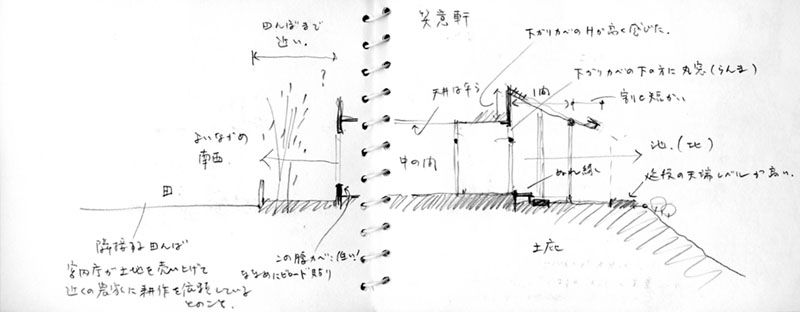 笑意軒
田んぼまで
近い.
?
よいながめ
南西.
田.
隣接する田んぼ
宮内庁が土地を売い上げて
近くの農家に耕作を依頼している
とのこと.
この腰カベ:低い!
ななめにビロード貼り
下がりカベのHが高く感じた.
下がりカベの下の方に丸窓(らんま)
天井は平ら
1間
割と短かい
中の間
池.(北)
ぬれ縁
延段の天端レベルが高い.
土庇